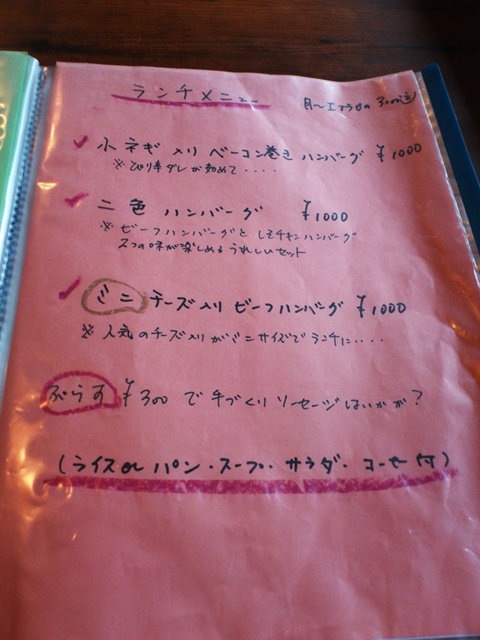 ランチメニュー
月〜土
小ネギ入り ベーコン巻き ハンバーグ ¥1000
※ ぴり辛ダレが初めて・・・・
二色 ハンバーグ ¥1000
※ ビーフハンバーグと しそチキンハンバーグ
2つの味が楽しめるうれしいセット
ミニ チーズ入り ビーフハンバーグ ¥1000
※ 人気のチーズ入りがミニサイズでランチに・・・・
ぷらす ¥300 で 手づくり ソーセージはいかが?
(ライス or パン・スープ・サラダ・コーヒー付)